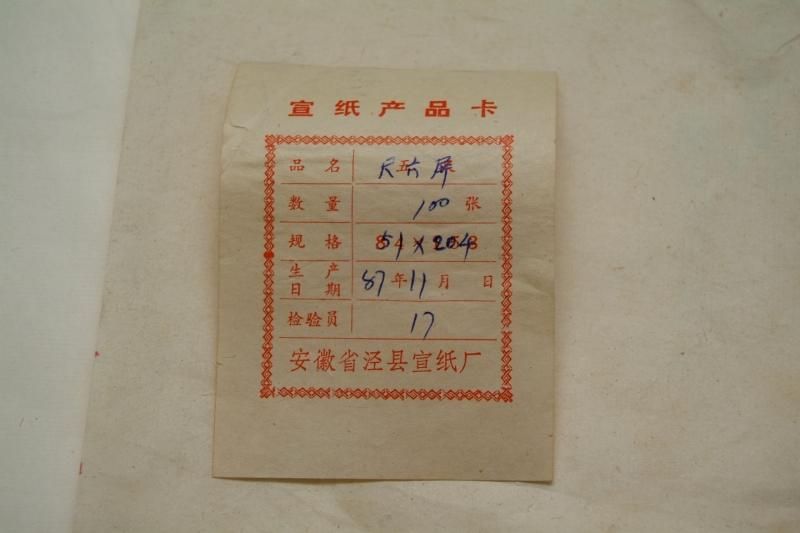 宣纸产品卡
品名 尺六屏
数量 100 张
规格 51×204
生产日期 87年11月 日
检验员 17
安徽省泾县宣纸厂